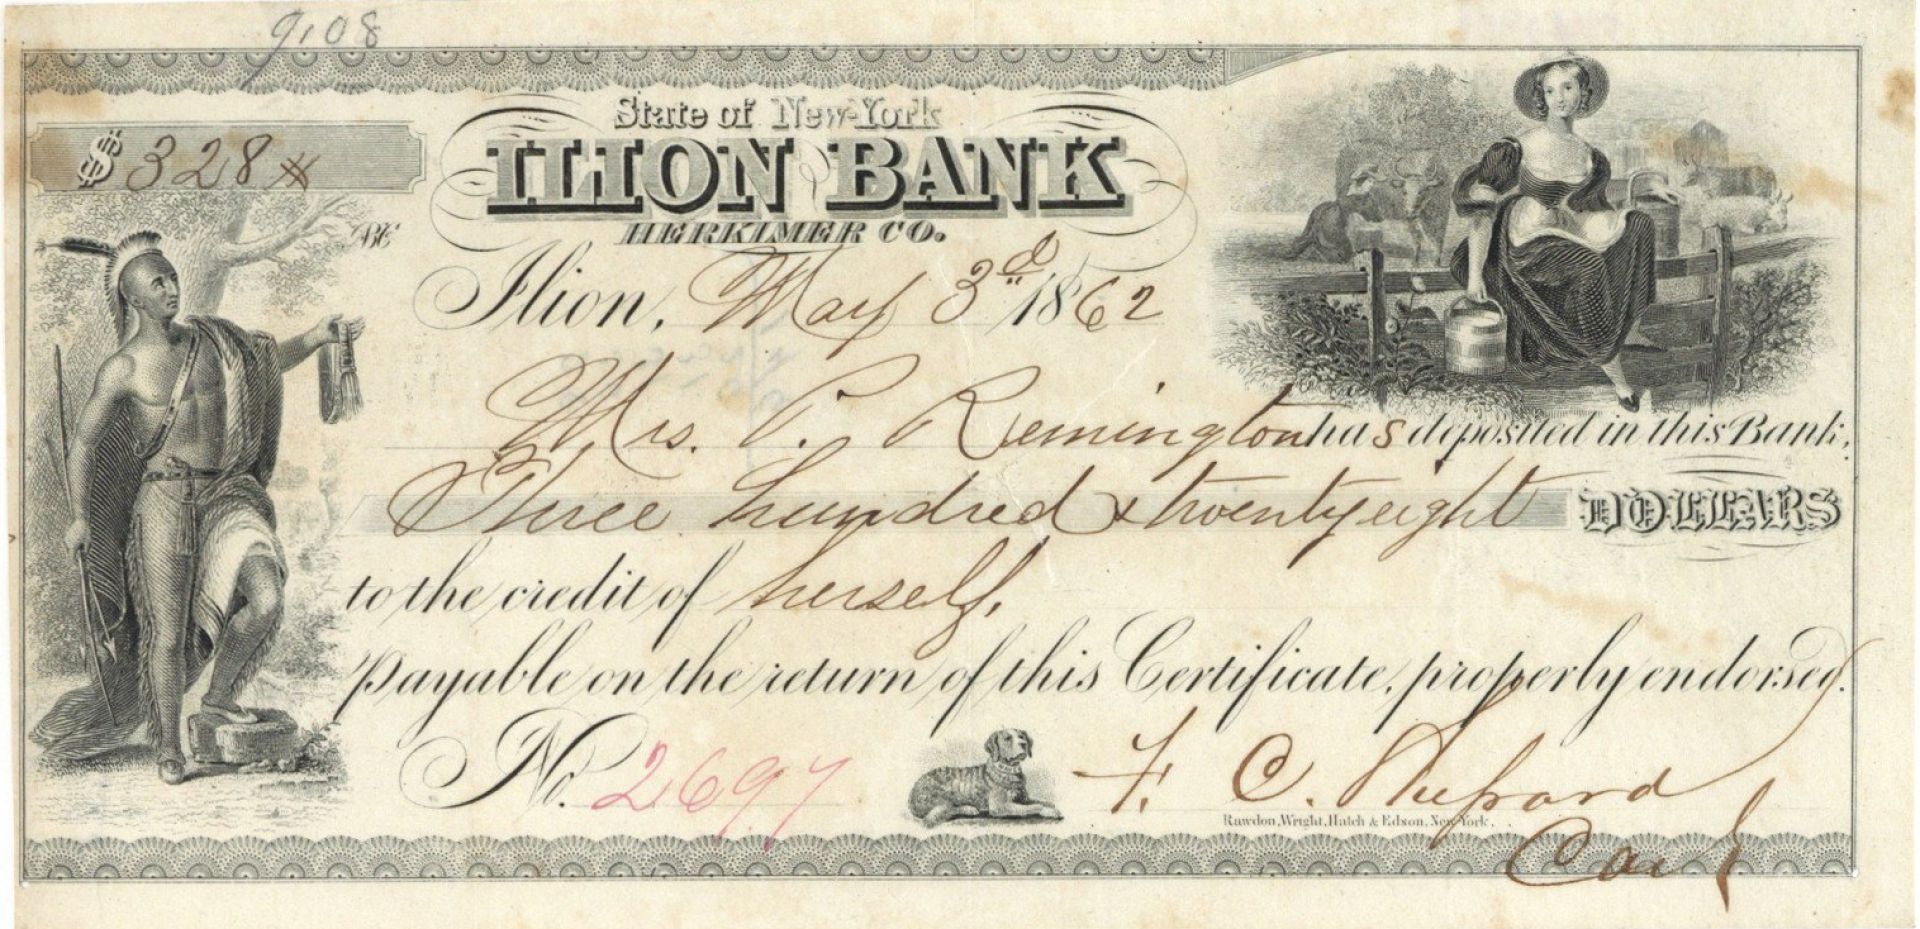 9,08
State of New-York
$328
ILION BANK
HERKIMER CO.
Ilion, May 3d 1862
Mrs. P. Remington has deposited in this Bank,
Three hundred & twenty eight DOLLARS
to the credit of herself,
Payable on the return of this Certificate, properly endorsed.
No. 2697
F. C. Shepard
Rawdon, Wright, Hatch & Edson, New York.